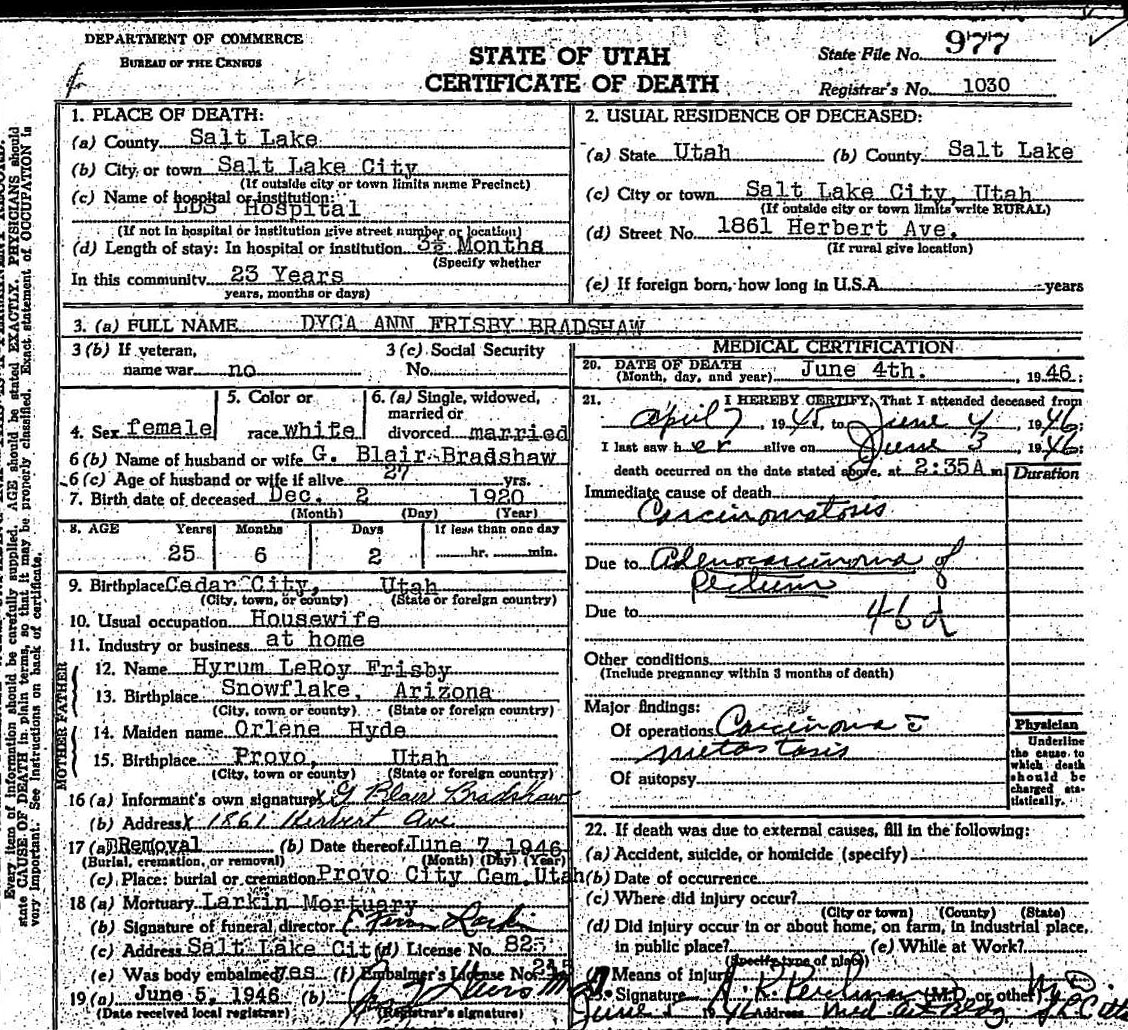 DEPARTMENT OF COMMERCE
BUREAU OF THE CENSUS
STATE OF UTAH
CERTIFICATE OF DEATH
State File No. 977
Registrar's No. 1030
1. PLACE OF DEATH:
(a) County Salt Lake
(b) City or town Salt Lake City
(If outside city or town limits name Precinct)
(c) Name of hospital or institution:
LDS Hospital
(If not in hospital or institution give street number or location)
(d) Length of stay: In hospital or institution 3½ Months
(Specify whether
In this community 23 Years
years, months or days)
2. USUAL RESIDENCE OF DECEASED:
(a) State Utah (b) County Salt Lake
(c) City or town Salt Lake City, Utah
(If outside city or town limits write RURAL)
(d) Street No. 1861 Herbert Ave.
(If rural give location)
(e) If foreign born, how long in U.S.A. years
3. (a) FULL NAME DYCA ANN FRISBY BRADSHAW
3 (b) If veteran,
name war no
3 (c) Social Security
No.
4. Sex female
5. Color or
race white
6. (a) Single, widowed,
married or
divorced married
6 (b) Name of husband or wife G. Blair Bradshaw
6 (c) Age of husband or wife if alive 27 yrs.
7. Birth date of deceased Dec. 2 1920
(Month) (Day) (Year)
8. AGE Years Months Days If less than one day
25 6 2 hr. min.
9. Birthplace Cedar City, Utah
(City, town, or county) (State or foreign country)
10. Usual occupation Housewife
11. Industry or business at home
FATHER
12. Name Hyrum LeRoy Frisby
13. Birthplace Snowflake, Arizona
(City, town or county) (State or foreign country)
MOTHER
14. Maiden name Orlene Hyde
15. Birthplace Provo, Utah
(City, town or county) (State or foreign country)
16 (a) Informant's own signature x G Blair Bradshaw
(b) Address x 1861 Herbert Ave
17 (a) Removal (b) Date thereof June 7, 1946
(Burial, cremation, or removal) (Month) (Day) (Year)
(c) Place: burial or cremation Provo City Cem. Utah
18 (a) Mortuary Larkin Mortuary
(b) Signature of funeral director
(c) Address Salt Lake City (d) License No. 825
(e) Was body embalmed yes (f) Embalmer's License No.
19 (a) June 5, 1946 (b)
(Date received local registrar) (Registrar's signature)
MEDICAL CERTIFICATION
20. DATE OF DEATH
(Month, day, and year) June 4th. , 1946;
21. I HEREBY CERTIFY, That I attended deceased from
April 7, 1945, to June 4, 1946;
I last saw her alive on June 3, 1946;
death occurred on the date stated above, at 2:35A m.
Duration
Immediate cause of death
Carcinomatosis
Due to Adenocarcinoma of
Rectum
Due to 46d
Other conditions
(Include pregnancy within 3 months of death)
Major findings:
Of operations Carcinoma c̄
metastasis
Of autopsy
Physician
Underline
the cause to
which death
should be
charged sta-
tistically.
22. If death was due to external causes, fill in the following:
(a) Accident, suicide, or homicide (specify)
(b) Date of occurrence
(c) Where did injury occur?
(City or town) (County) (State)
(d) Did injury occur in or about home, on farm, in industrial place,
in public place? (e) While at Work?
(Specify type of place)
Means of injury
23. Signature (M.D. or other) M.D.
June 1946 Address
Every item of information should be carefully supplied. AGE should be stated EXACTLY. PHYSICIANS should
state CAUSE OF DEATH in plain terms, so that it may be properly classified. Exact statement of OCCUPATION is
very important. See instructions on back of certificate.